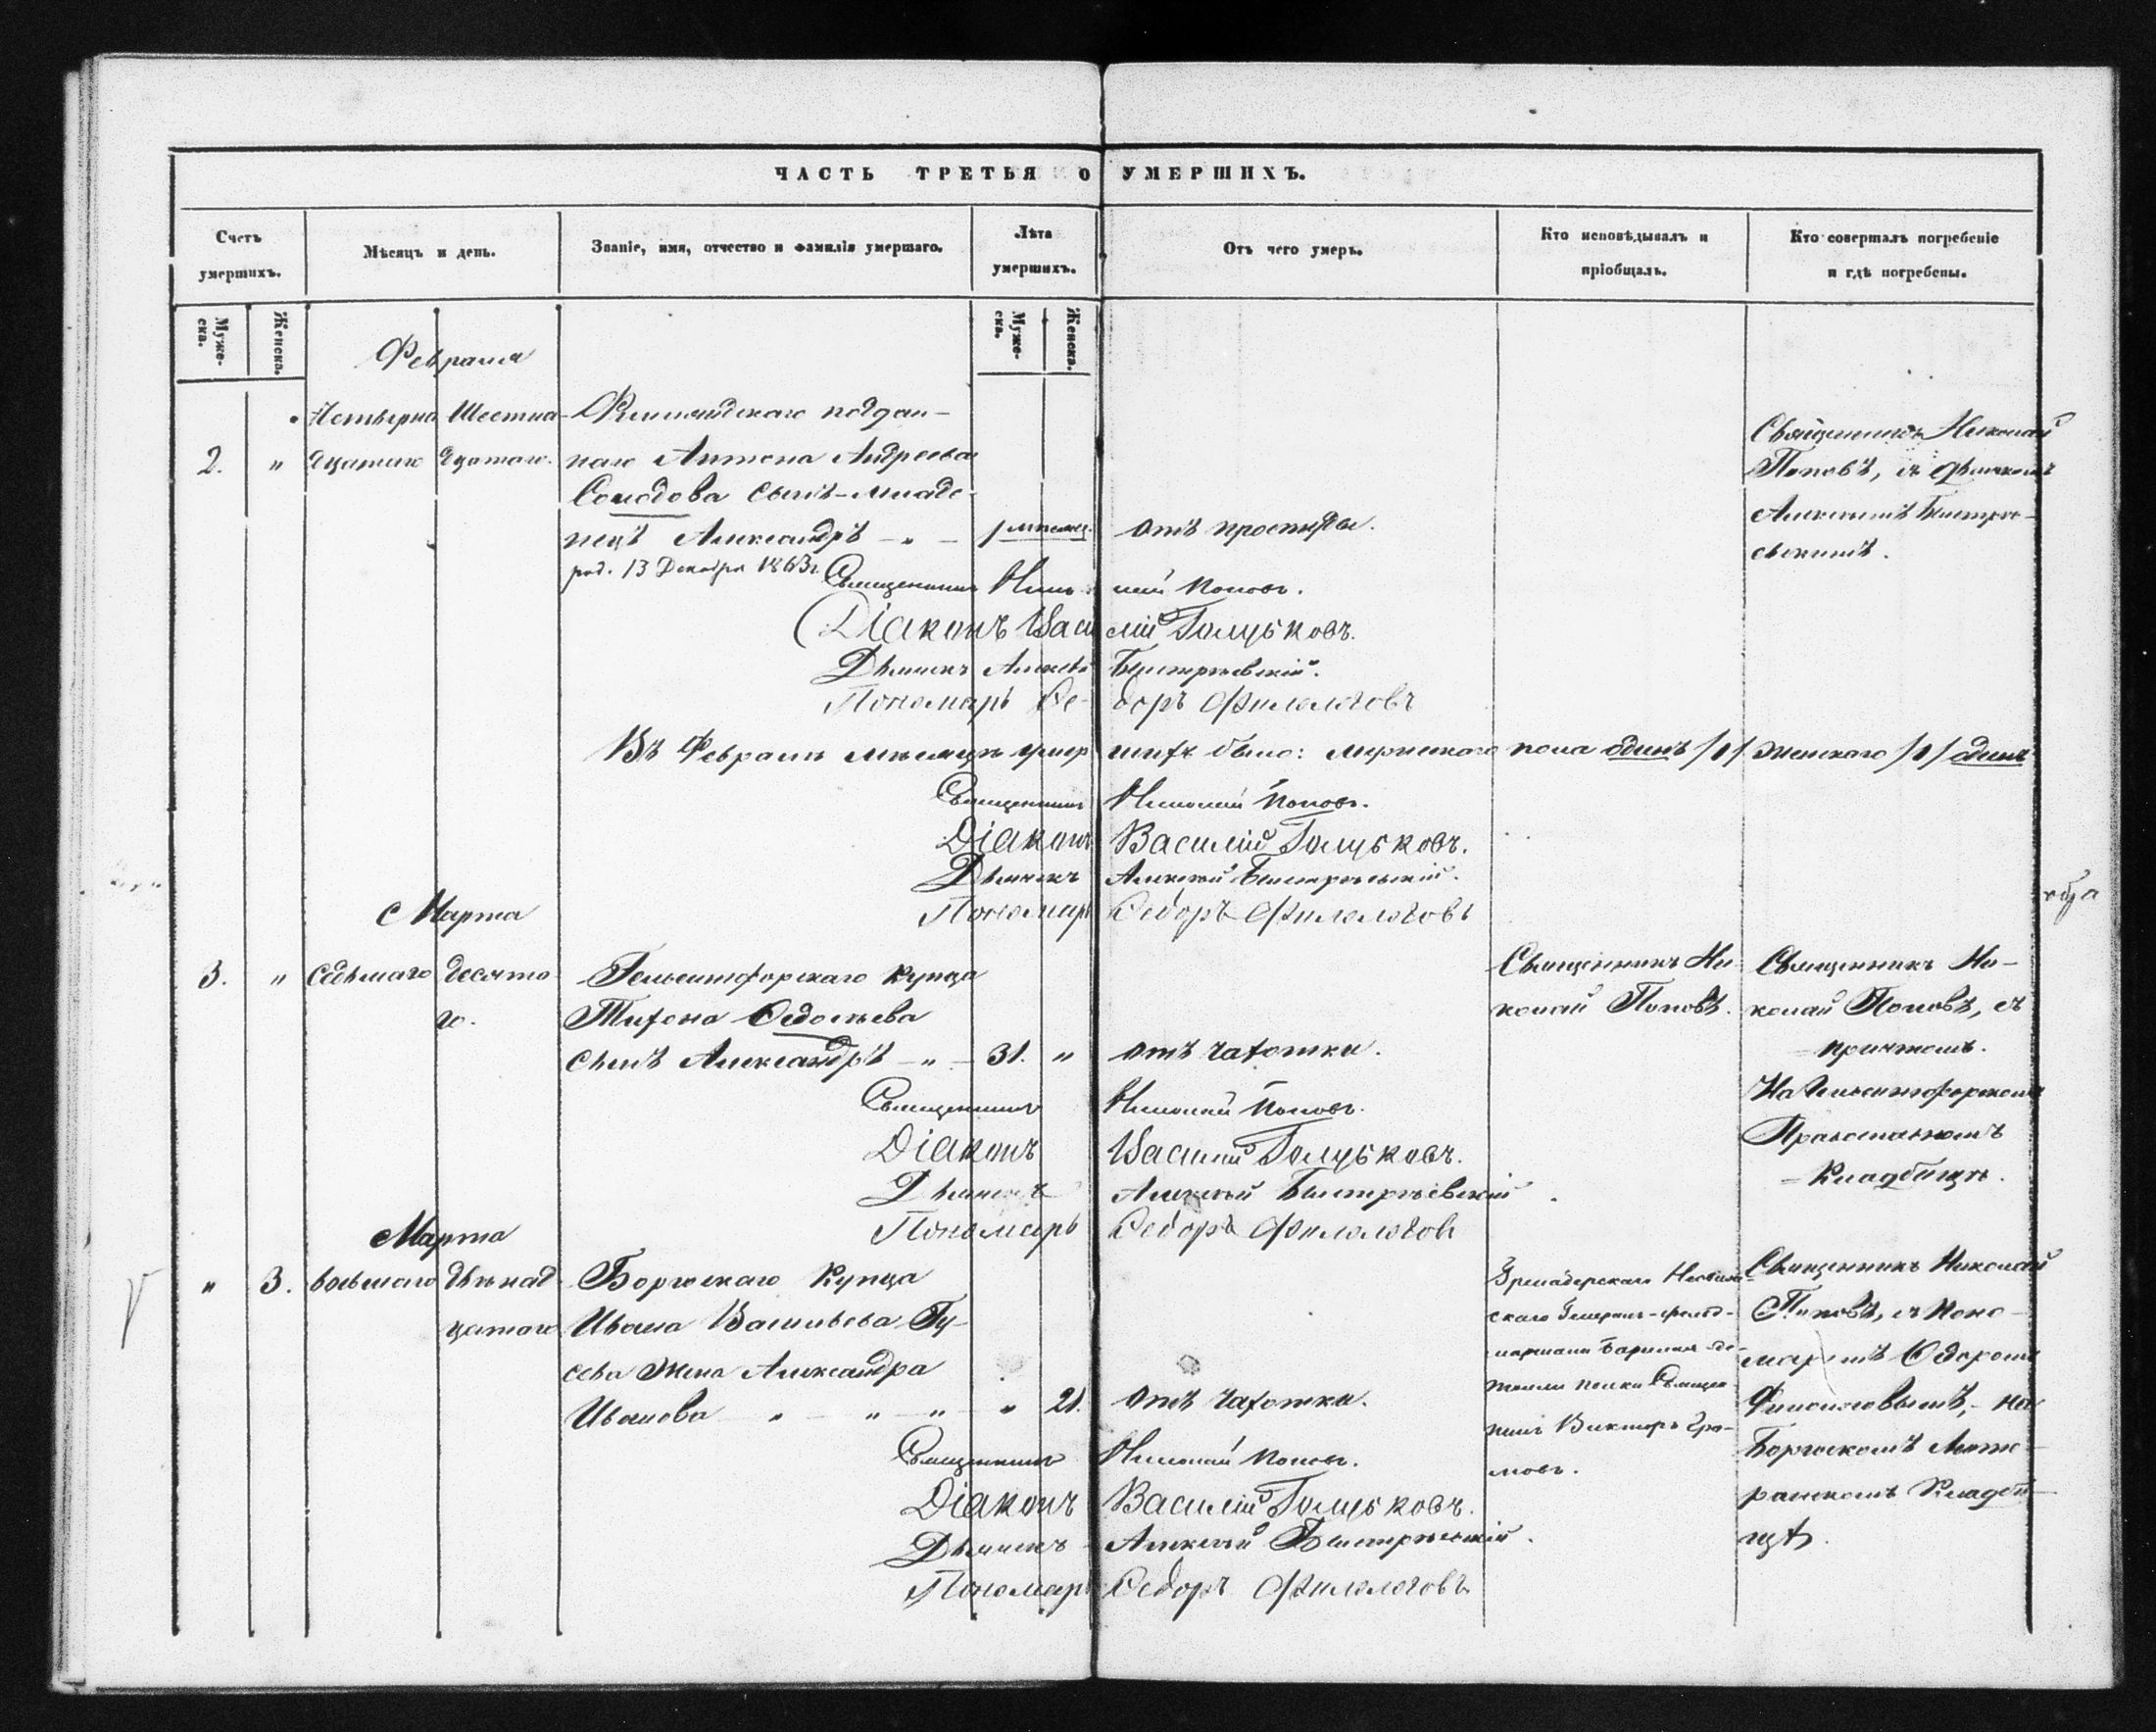 ЧАСТЬ ТРЕТЬЯ О УМЕРШИХЪ.
Счетъ умершихъ.
Мѣсяцъ и день.
Званіе, имя, отчество и фамилія умершаго.
Лѣта умершихъ.
Отъ чего умеръ.
Кто исповѣдывалъ и пріобщалъ.
Кто совершалъ погребеніе и гдѣ погребены.
Муже-
ска.
Женска.
Муже-
ска.
Женска.
Февраля
2. "
Четырна
дцатаго
Шестна-
дцатаго.
Финляндскаго поддан-
наго Антона Андреева
Солодова сынъ-младе-
нецъ Александръ - " -
род. 13 Декабря 1863 г.
отъ простуды.
Священникъ Николай
Поповъ, съ дьячкомъ
Алексѣемъ Быстрѣ-
евскимъ.
Священникъ Николай Поповъ.
Діаконъ Василій Голубковъ.
Дьячекъ Алексѣй Быстрѣевскій.
Пономарь Ѳедоръ Филологовъ
Въ Февралѣ мѣсяцѣ умершихъ было: мужескаго пола одинъ /1/ женскаго /1/ одинъ
Священникъ Николай Поповъ.
Діаконъ Василій Голубковъ.
Дьячекъ Алексѣй Быстрѣевскій.
Пономарь Ѳедоръ Филологовъ
Марта
3. "
Седьмаго
десята
го.
Гельсингфорскаго купца
Тихона Ѳедосѣева
сынъ Александръ - " - 31. "
отъ чахотки.
Священникъ Ни-
колай Поповъ.
Священникъ Ни-
колай Поповъ, съ
причтомъ.
На Гельсингфорскомъ
Православномъ
Кладбищѣ.
Священникъ Николай Поповъ.
Діаконъ Василій Голубковъ.
Дьячекъ Алексѣй Быстрѣевскій.
Пономарь Ѳедоръ Филологовъ
Марта
" 3.
восьмаго
двѣнад
цатаго
Боргоскаго Купца
Ивана Васильева Гу-
сева жена Александра
Иванова " " " " 21.
отъ чахотки.
Гренадерскаго
скаго Генералъ-фельд-
маршала Барклая-де-
толли полка Священ-
никъ Викторъ Гро-
мовъ.
Священникъ Николай
Поповъ, съ поно-
маремъ Ѳедоромъ
Филологовымъ, - на
Боргоскомъ Люте-
ранскомъ Кладби-
щѣ.
Священникъ Николай Поповъ.
Діаконъ Василій Голубковъ.
Дьячекъ Алексѣй Быстрѣевскій.
Пономарь Ѳедоръ Филологовъ